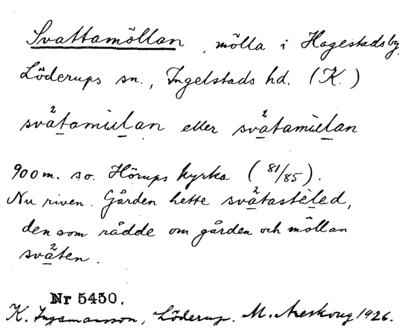 Svattamöllan, mölla i Hagestadsby,
Löderups sn., Ingelstads hd. (K.)
svätamielan eller svätamielan
900 m. so. Hörups kyrka (81/85).
Nu riven. Gården hette svätasteled,
den som rådde om gården och möllan
sväten.
Nr 5450.
K. Ingemansson, Löderup. M. Areskoug 1926.